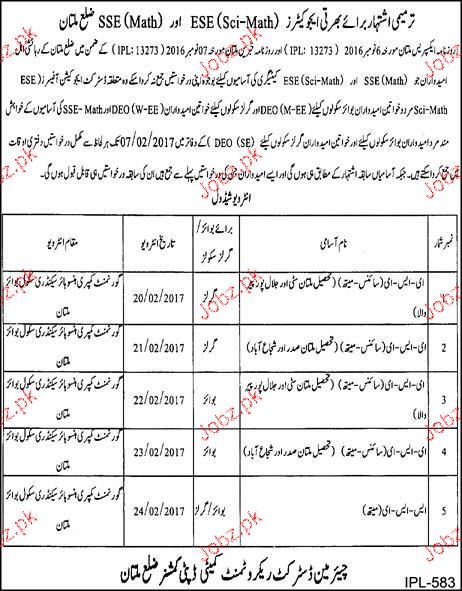 ترمیمی اشتہار برائے بھرتی ایجوکیٹرز ESE (Sci-Math) اور SSE (Math) ضلع ملتان
روزنامہ ایکسپریس ملتان مورخہ 6 نومبر 2016 (IPL: 13273) اور روزنامہ خبریں ملتان مورخہ 07 نومبر 2016 (IPL: 13273) کے ضمن میں ضلع ملتان کے رہائشی اہل
امیدواران جو SSE (Math) اور ESE (Sci-Math) کیٹیگری کی آسامیوں کیلئے بوجوہ اپنی درخواستیں جمع نہ کروا سکے وہ متعلقہ ڈسٹرکٹ ایجوکیشن آفیسرز ESE
Sci-Math مرد و خواتین امیدواران بوائز سکولوں کیلئے DEO (M-EE) اور گرلز سکولوں کیلئے خواتین امیدواران DEO (W-EE) اور SSE- Math کی آسامیوں کے خواہش
مند مرد امیدواران بوائز سکولوں کیلئے اور خواتین امیدواران گرلز سکولوں کیلئے DEO (SE) کے دفاتر میں 07/02/2017 تک ہر لحاظ سے مکمل درخواستیں دفتری اوقات
میں جمع کروا سکتے ہیں۔ جبکہ آسامیاں سابقہ اشتہار کے مطابق ہی ہوں گی اور ایسے امیدواران جن کی درخواستیں پہلے سے جمع ہیں ان کی سابقہ درخواستیں ہی قابل قبول ہوں گی۔
انٹرویو شیڈول
نمبر شمار نام آسامی برائے بوائز/ گرلز سکولز تاریخ انٹرویو مقام انٹرویو
ای-ایس-ای (سائنس-میتھ) (تحصیل ملتان سٹی اور جلال پور پیر والا) گرلز 20/02/2017 گورنمنٹ کمپری ہنسو ہائر سیکنڈری سکول بوائز ملتان
2 ای-ایس-ای (سائنس-میتھ) (تحصیل ملتان صدر اور شجاع آباد) گرلز 21/02/2017 گورنمنٹ کمپری ہنسو ہائر سیکنڈری سکول بوائز ملتان
3 ای-ایس-ای (سائنس-میتھ) (تحصیل ملتان سٹی اور جلال پور پیر والا) بوائز 22/02/2017 گورنمنٹ کمپری ہنسو ہائر سیکنڈری سکول بوائز ملتان
4 ای-ایس-ای (سائنس-میتھ) (تحصیل ملتان صدر اور شجاع آباد) بوائز 23/02/2017 گورنمنٹ کمپری ہنسو ہائر سیکنڈری سکول بوائز ملتان
5 ایس-ایس-ای (میتھ) بوائز/گرلز 24/02/2017 گورنمنٹ کمپری ہنسو ہائر سیکنڈری سکول بوائز ملتان
چیئرمین ڈسٹرکٹ ریکروٹمنٹ کمیٹی ڈپٹی کمشنر ضلع ملتان
IPL-583
Jobz.pk